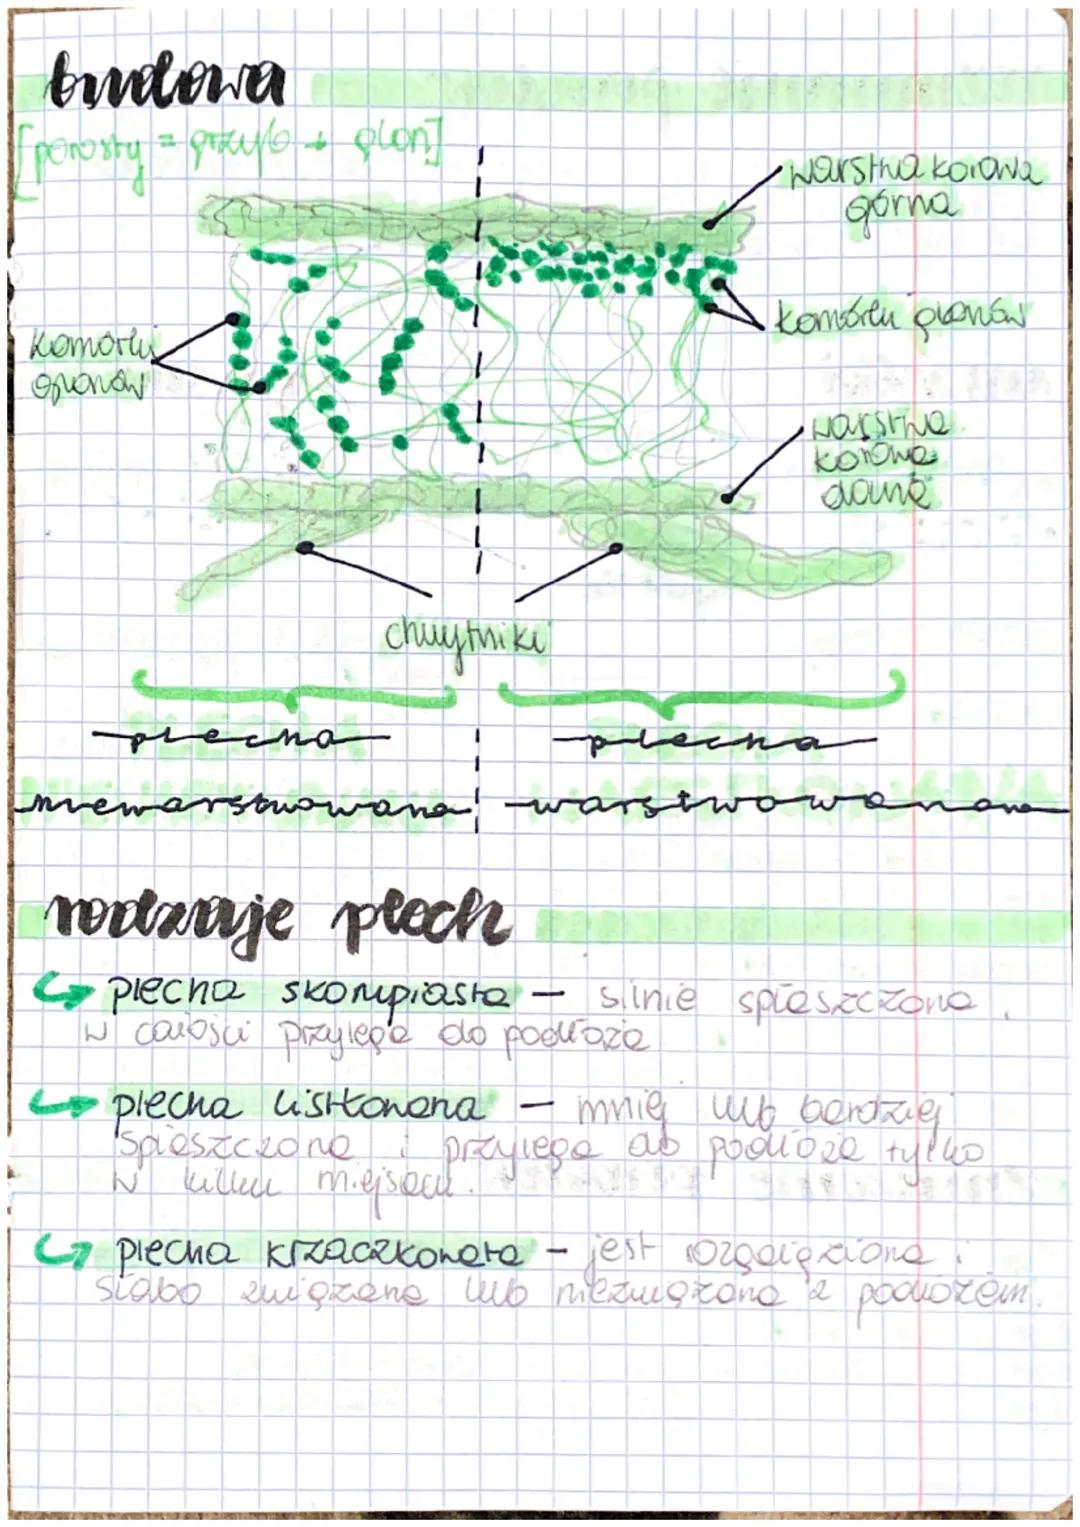 budowa
[porosty = grzyb + glon]
warstwa korowa
górna
komórki glonów
komórki
glonów
warstwa
korowa
dolna
chwytniki
plecha
niewarstwowana
plecha
warstwowana
rodzaje plech
plecha skorupiasta – silnie spłaszczona
w całości przylega do podłoża
plecha listkowana – mniej lub bardziej
spłaszczona i przylega do podłoża tylko
w kilku miejscach.
plecha krzaczkowata – jest rozgałęziona i
słabo związana lub niezwiązana z podłożem.